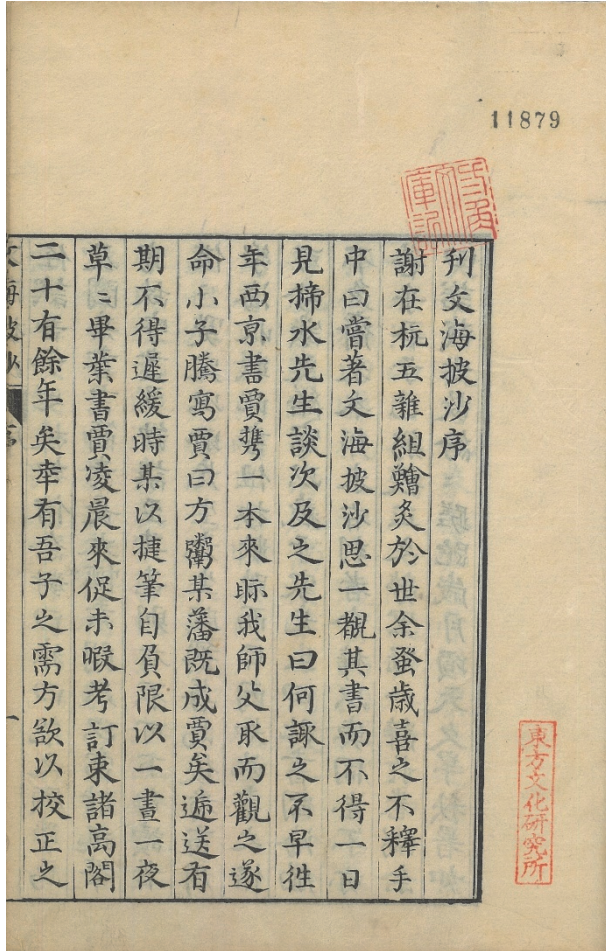 11879
刊文海披沙序
謝在杭五雜組鱠炙於世余蚤歳喜之不釋手
中曰嘗著文海披沙思一覩其書而不得一日
見揥水先生談次及之先生曰何諏之不早徃
年西亰書賈㩗一本來眎我師父取而觀之遂
命小子騰寫賈曰方鬻某藩既成賈矣逓送有
期不得遲緩時某以捷筆自負限以一晝一夜
草〻畢葉書賈凌晨來促未暇考訂束諸高閣
二十有餘年矣幸有吾子之需方欲以挍正之
文海披沙
序
一
東方文化研究所